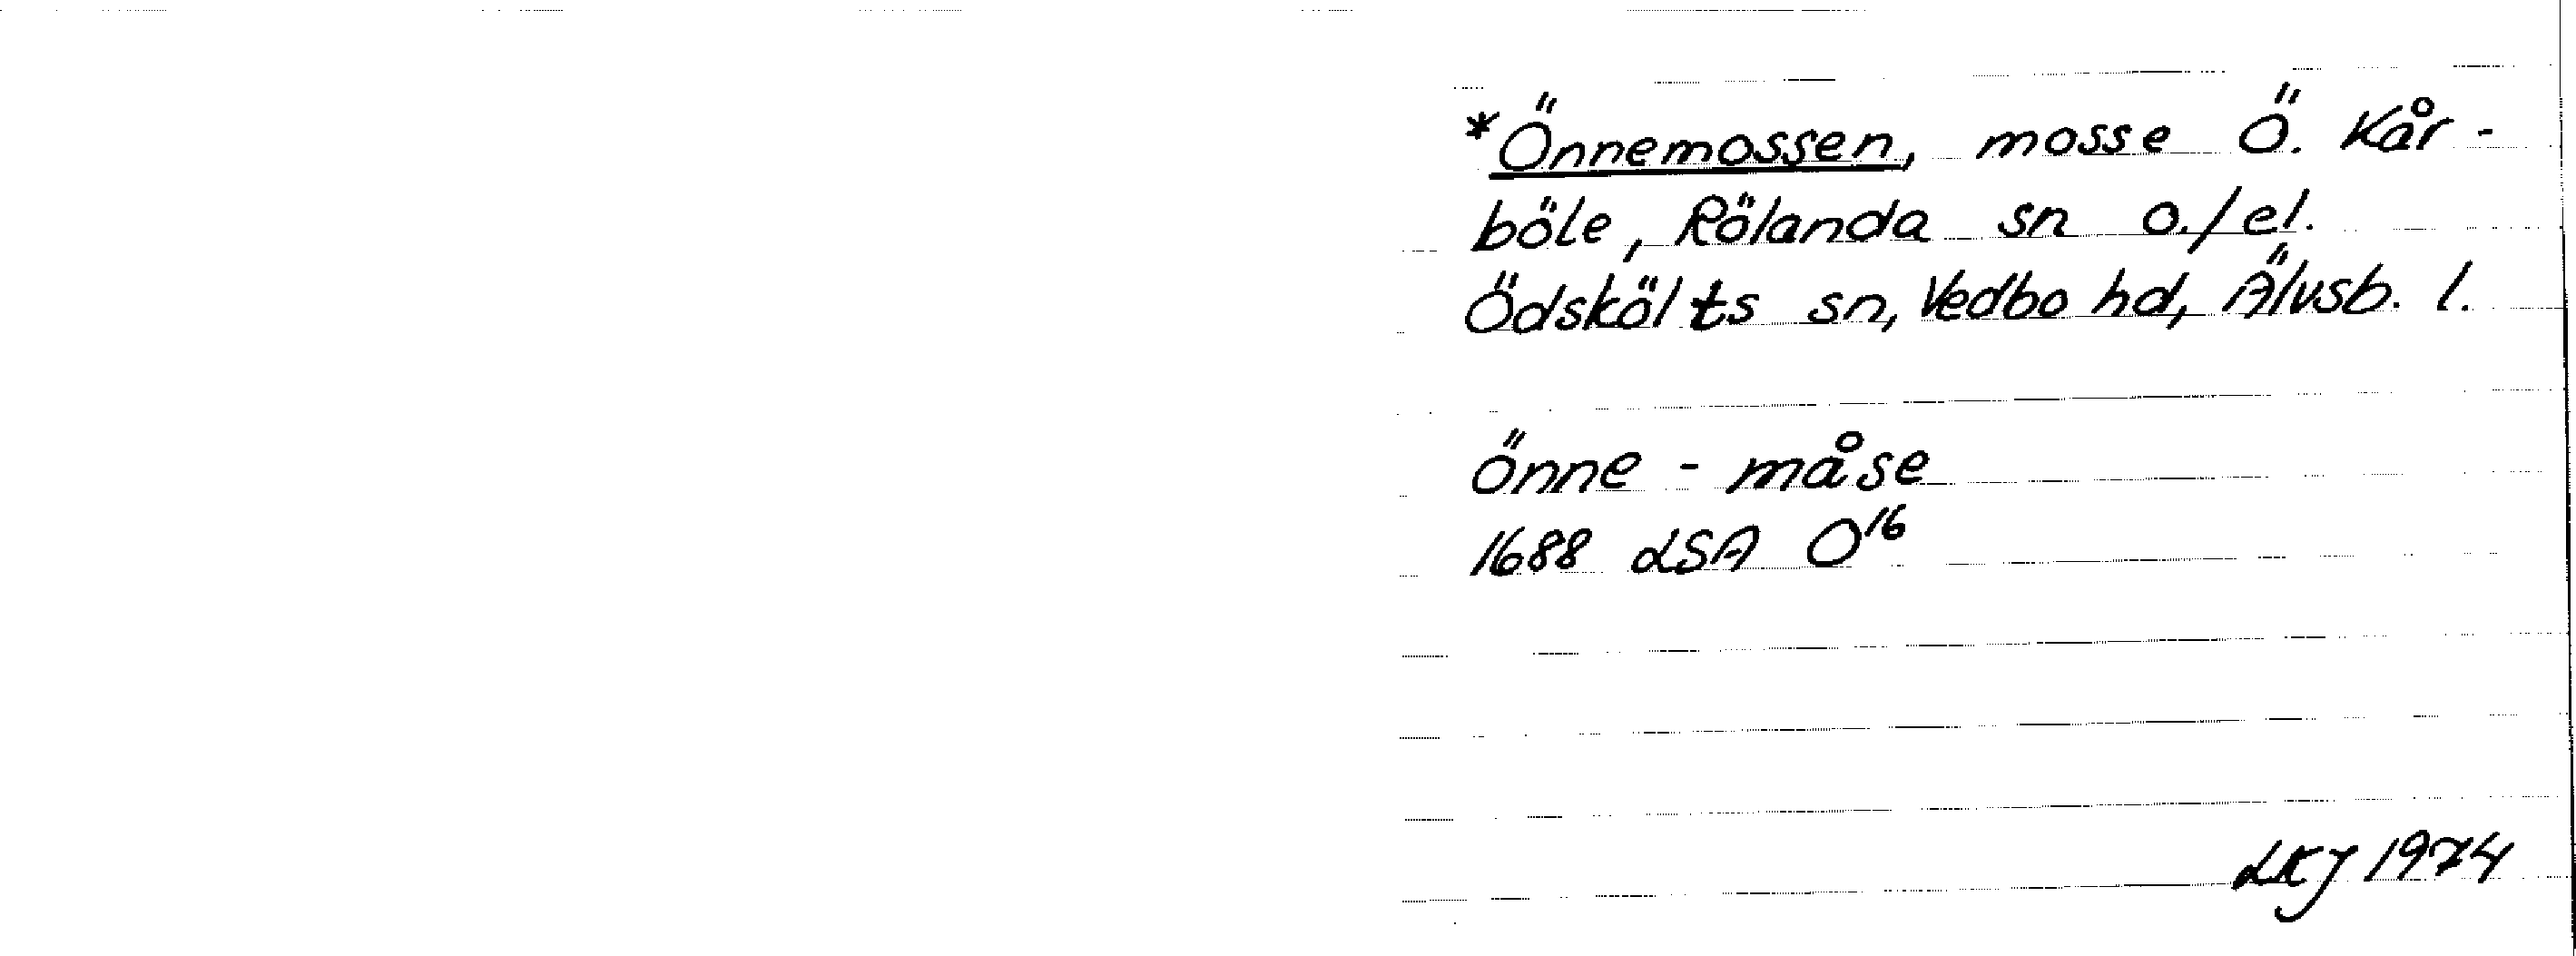 *Önnemossen, mosse Ö. Kår-
böle, Rölanda sn o./el.
Ödskölts sn, Vedbo hd, Älvsb. l.
önne - måse
1688 LSA O16
LKJ 1974